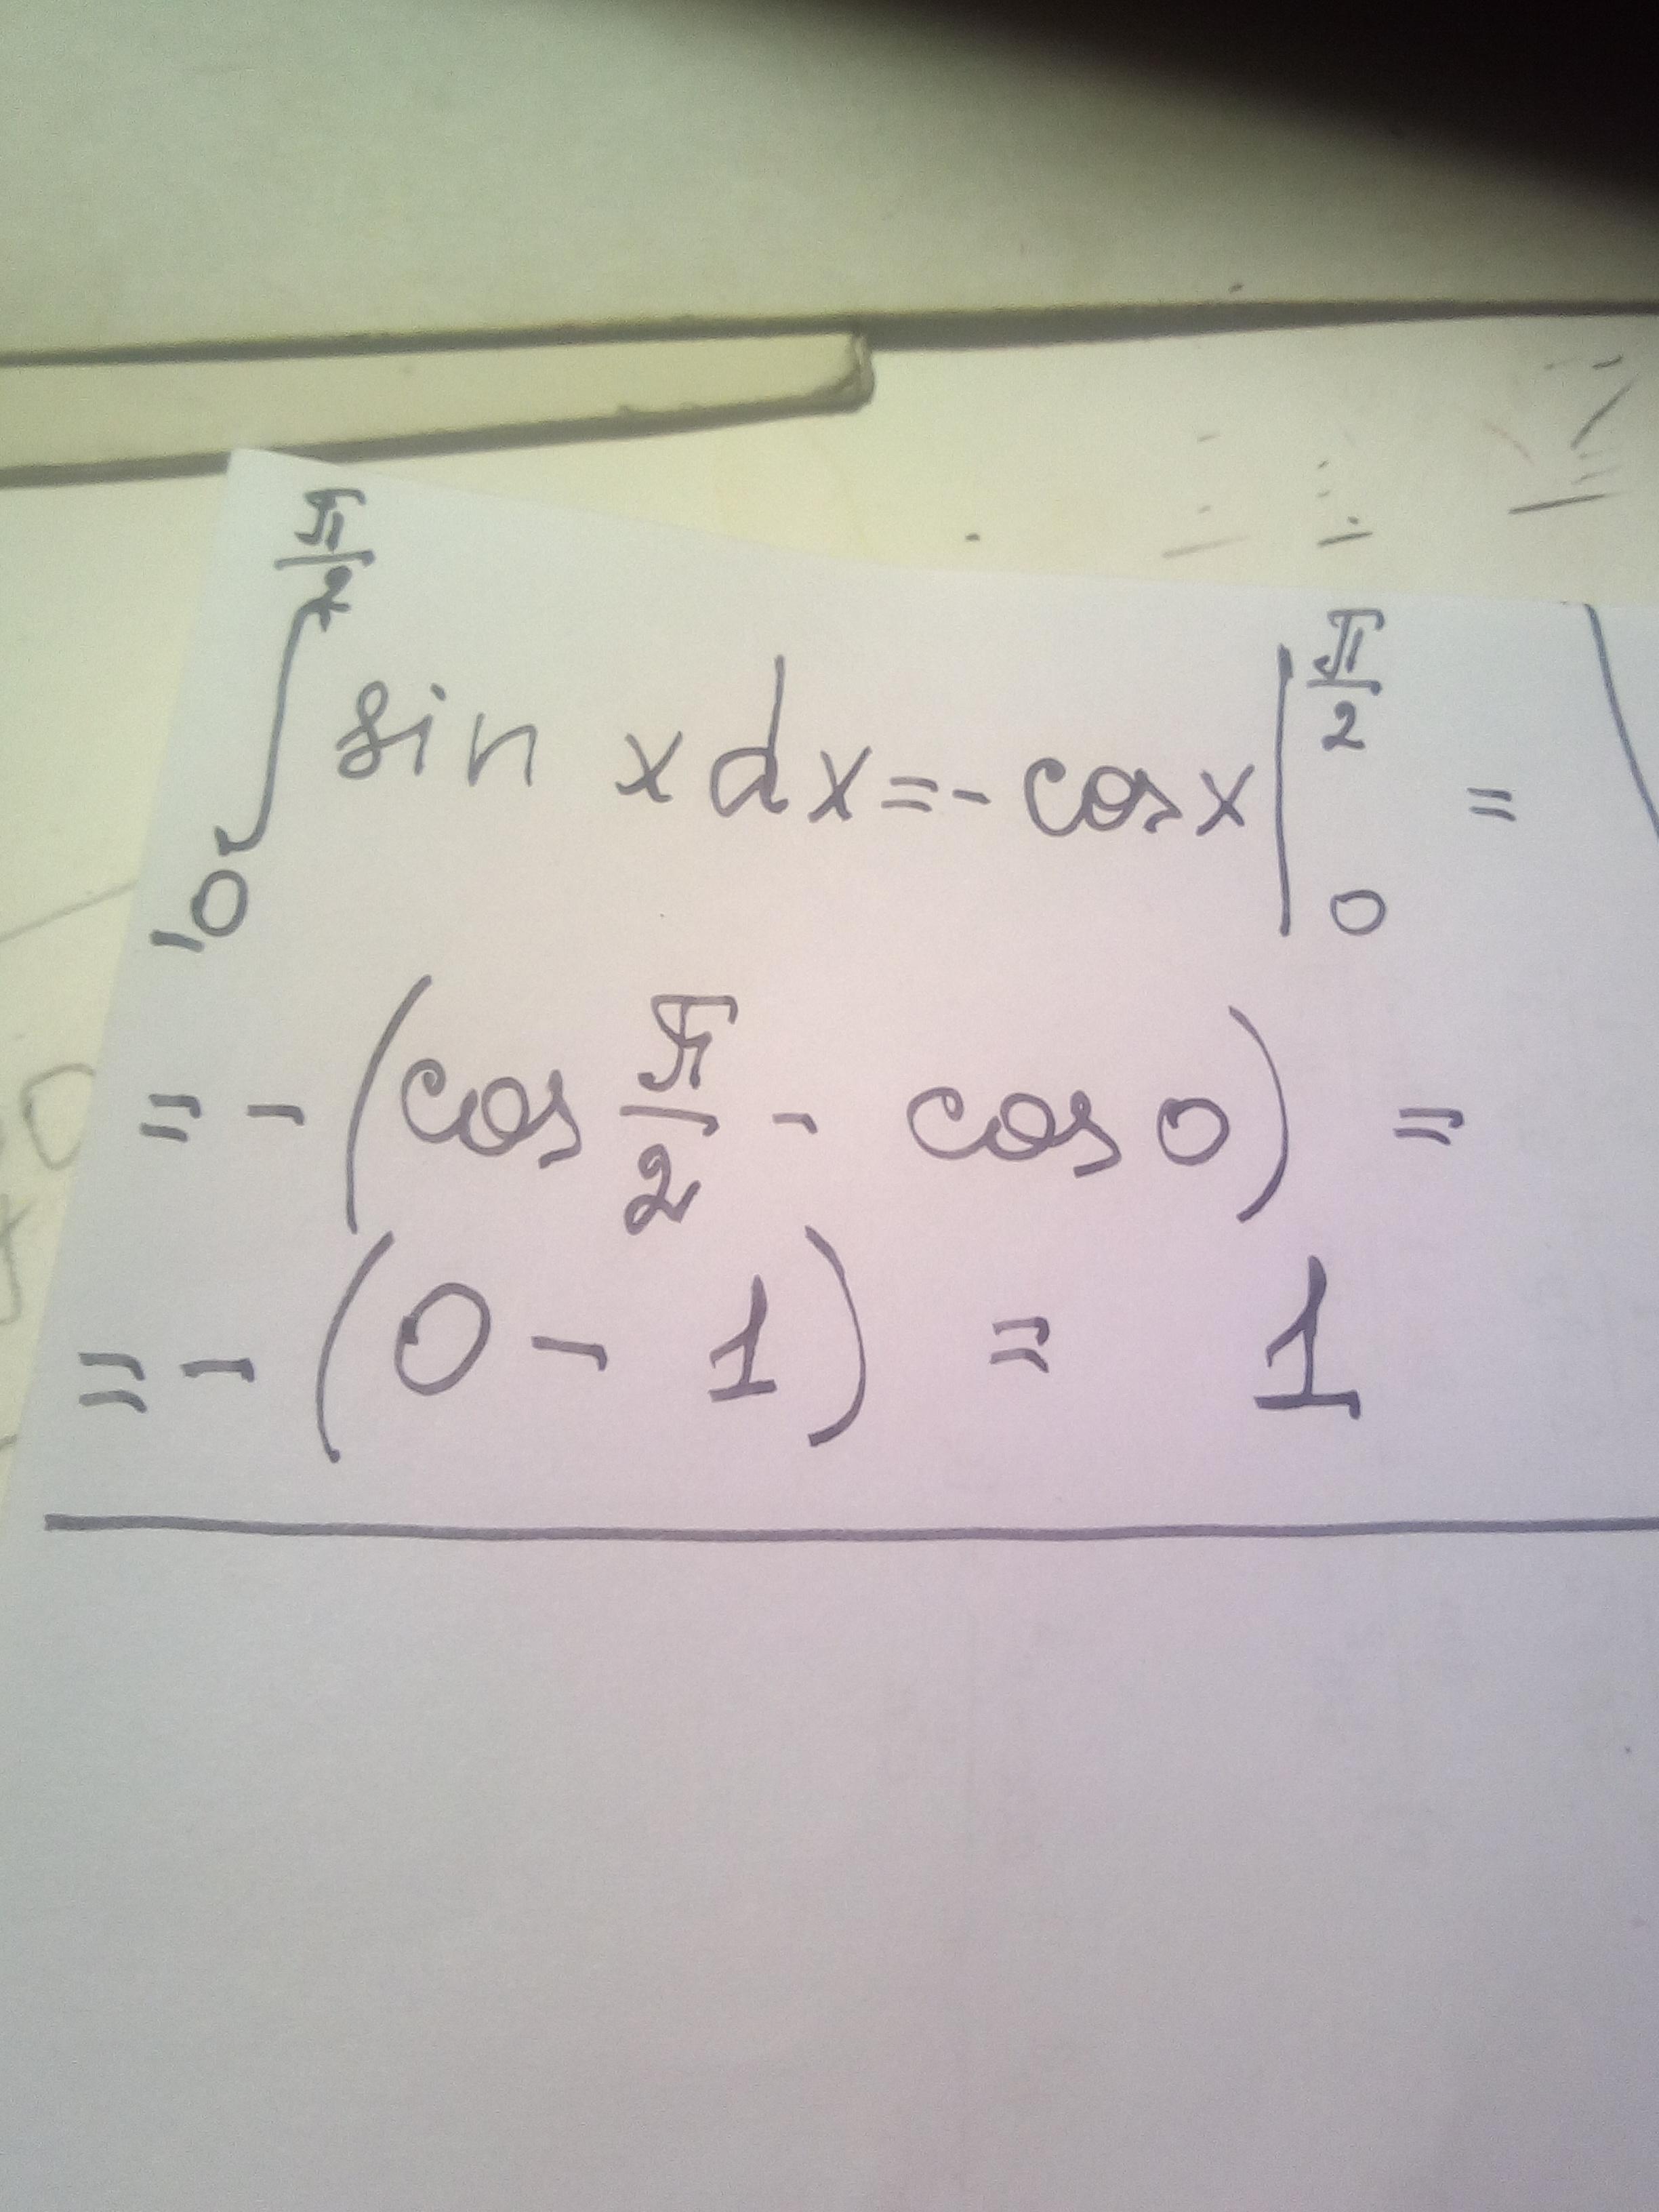 ∫₀^(π/2) sin x dx = - cos x |₀^(π/2) =
= - (cos π/2 - cos 0) =
= - (0 - 1) = 1